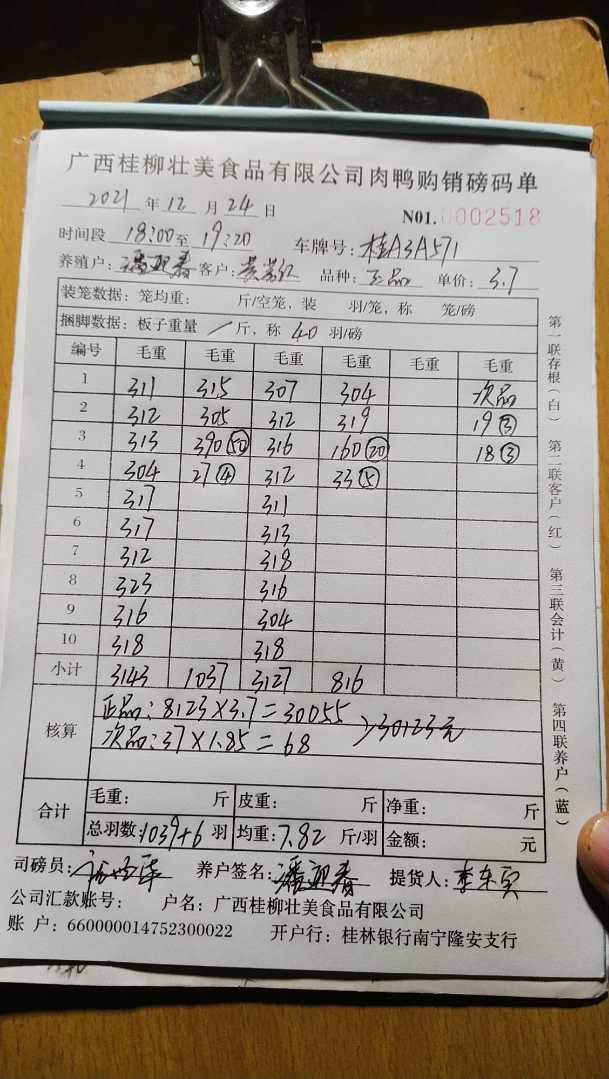 广西桂柳壮美食品有限公司肉鸭购销磅码单
2021 年 12 月 24 日 N01. 0002518
时间段 18:00 至 19:20 车牌号: 桂A3A571
养殖户: 潘迎春 客户: 品种: 正品 单价: 3.7
装笼数据: 笼均重: 斤/空笼, 装 羽/笼, 称 笼/磅
捆脚数据: 板子重量 / 斤, 称 40 羽/磅
编号 毛重 毛重 毛重 毛重 毛重 毛重
1 311 315 307 304 次品
2 312 305 312 319 19③
3 313 390㊿ 316 160⑳ 18③
4 304 27④ 312 33⑤
5 317 311
6 317 313
7 312 318
8 323 316
9 316 304
10 318 318
小计 3143 1037 3127 816
核算
正品: 8123×3.7=30055
次品: 37×1.85=68 >30123元
合计
毛重: 斤 皮重: 斤 净重: 斤
总羽数: 1039+6 羽 均重: 7.82 斤/羽 金额: 元
司磅员: 养户签名: 潘迎春 提货人:
公司汇款账号: 户名: 广西桂柳壮美食品有限公司
账 户: 660000014752300022 开户行: 桂林银行南宁隆安支行
第一联存根(白) 第二联客户(红) 第三联会计(黄) 第四联养户(蓝)